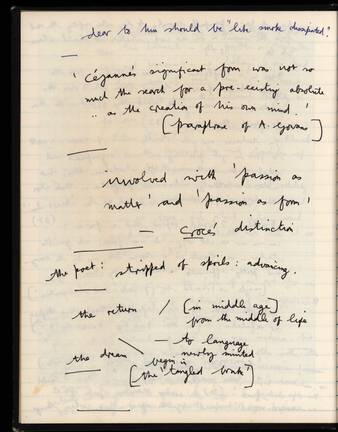 dear to him should be "like smoke dissipated".
' Cézanne's significant form was not so
much the search for a pre-existing absolute
.. as the creation of his own mind.'
[paraphrase of A. Gowans]
involved with 'passion as
matter' and 'passion as form'
— Croce's distinction
the poet: stripped of spoils: advancing.
the return / [in middle age]
from the middle of life
— to language
newly minted
the dream begin in
[the 'tangled